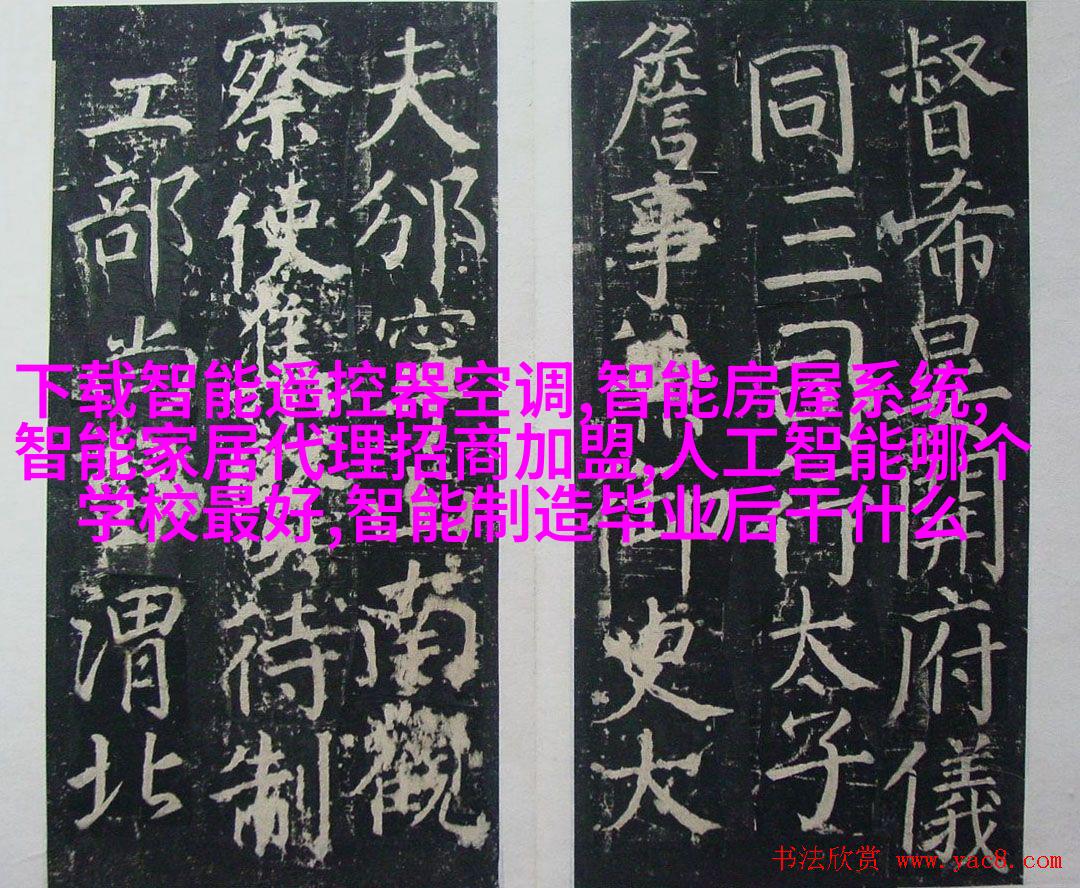 督希開府儀
同三司太子
詹事兼御史大
夫邠南觀
察使待制
工部尚渭北
下载智能遥控器空调,智能房屋系统,
智能家居代理招商加盟,人工智能哪个
学校最好,智能制造毕业后干什么
书法欣赏 www.yac8.com